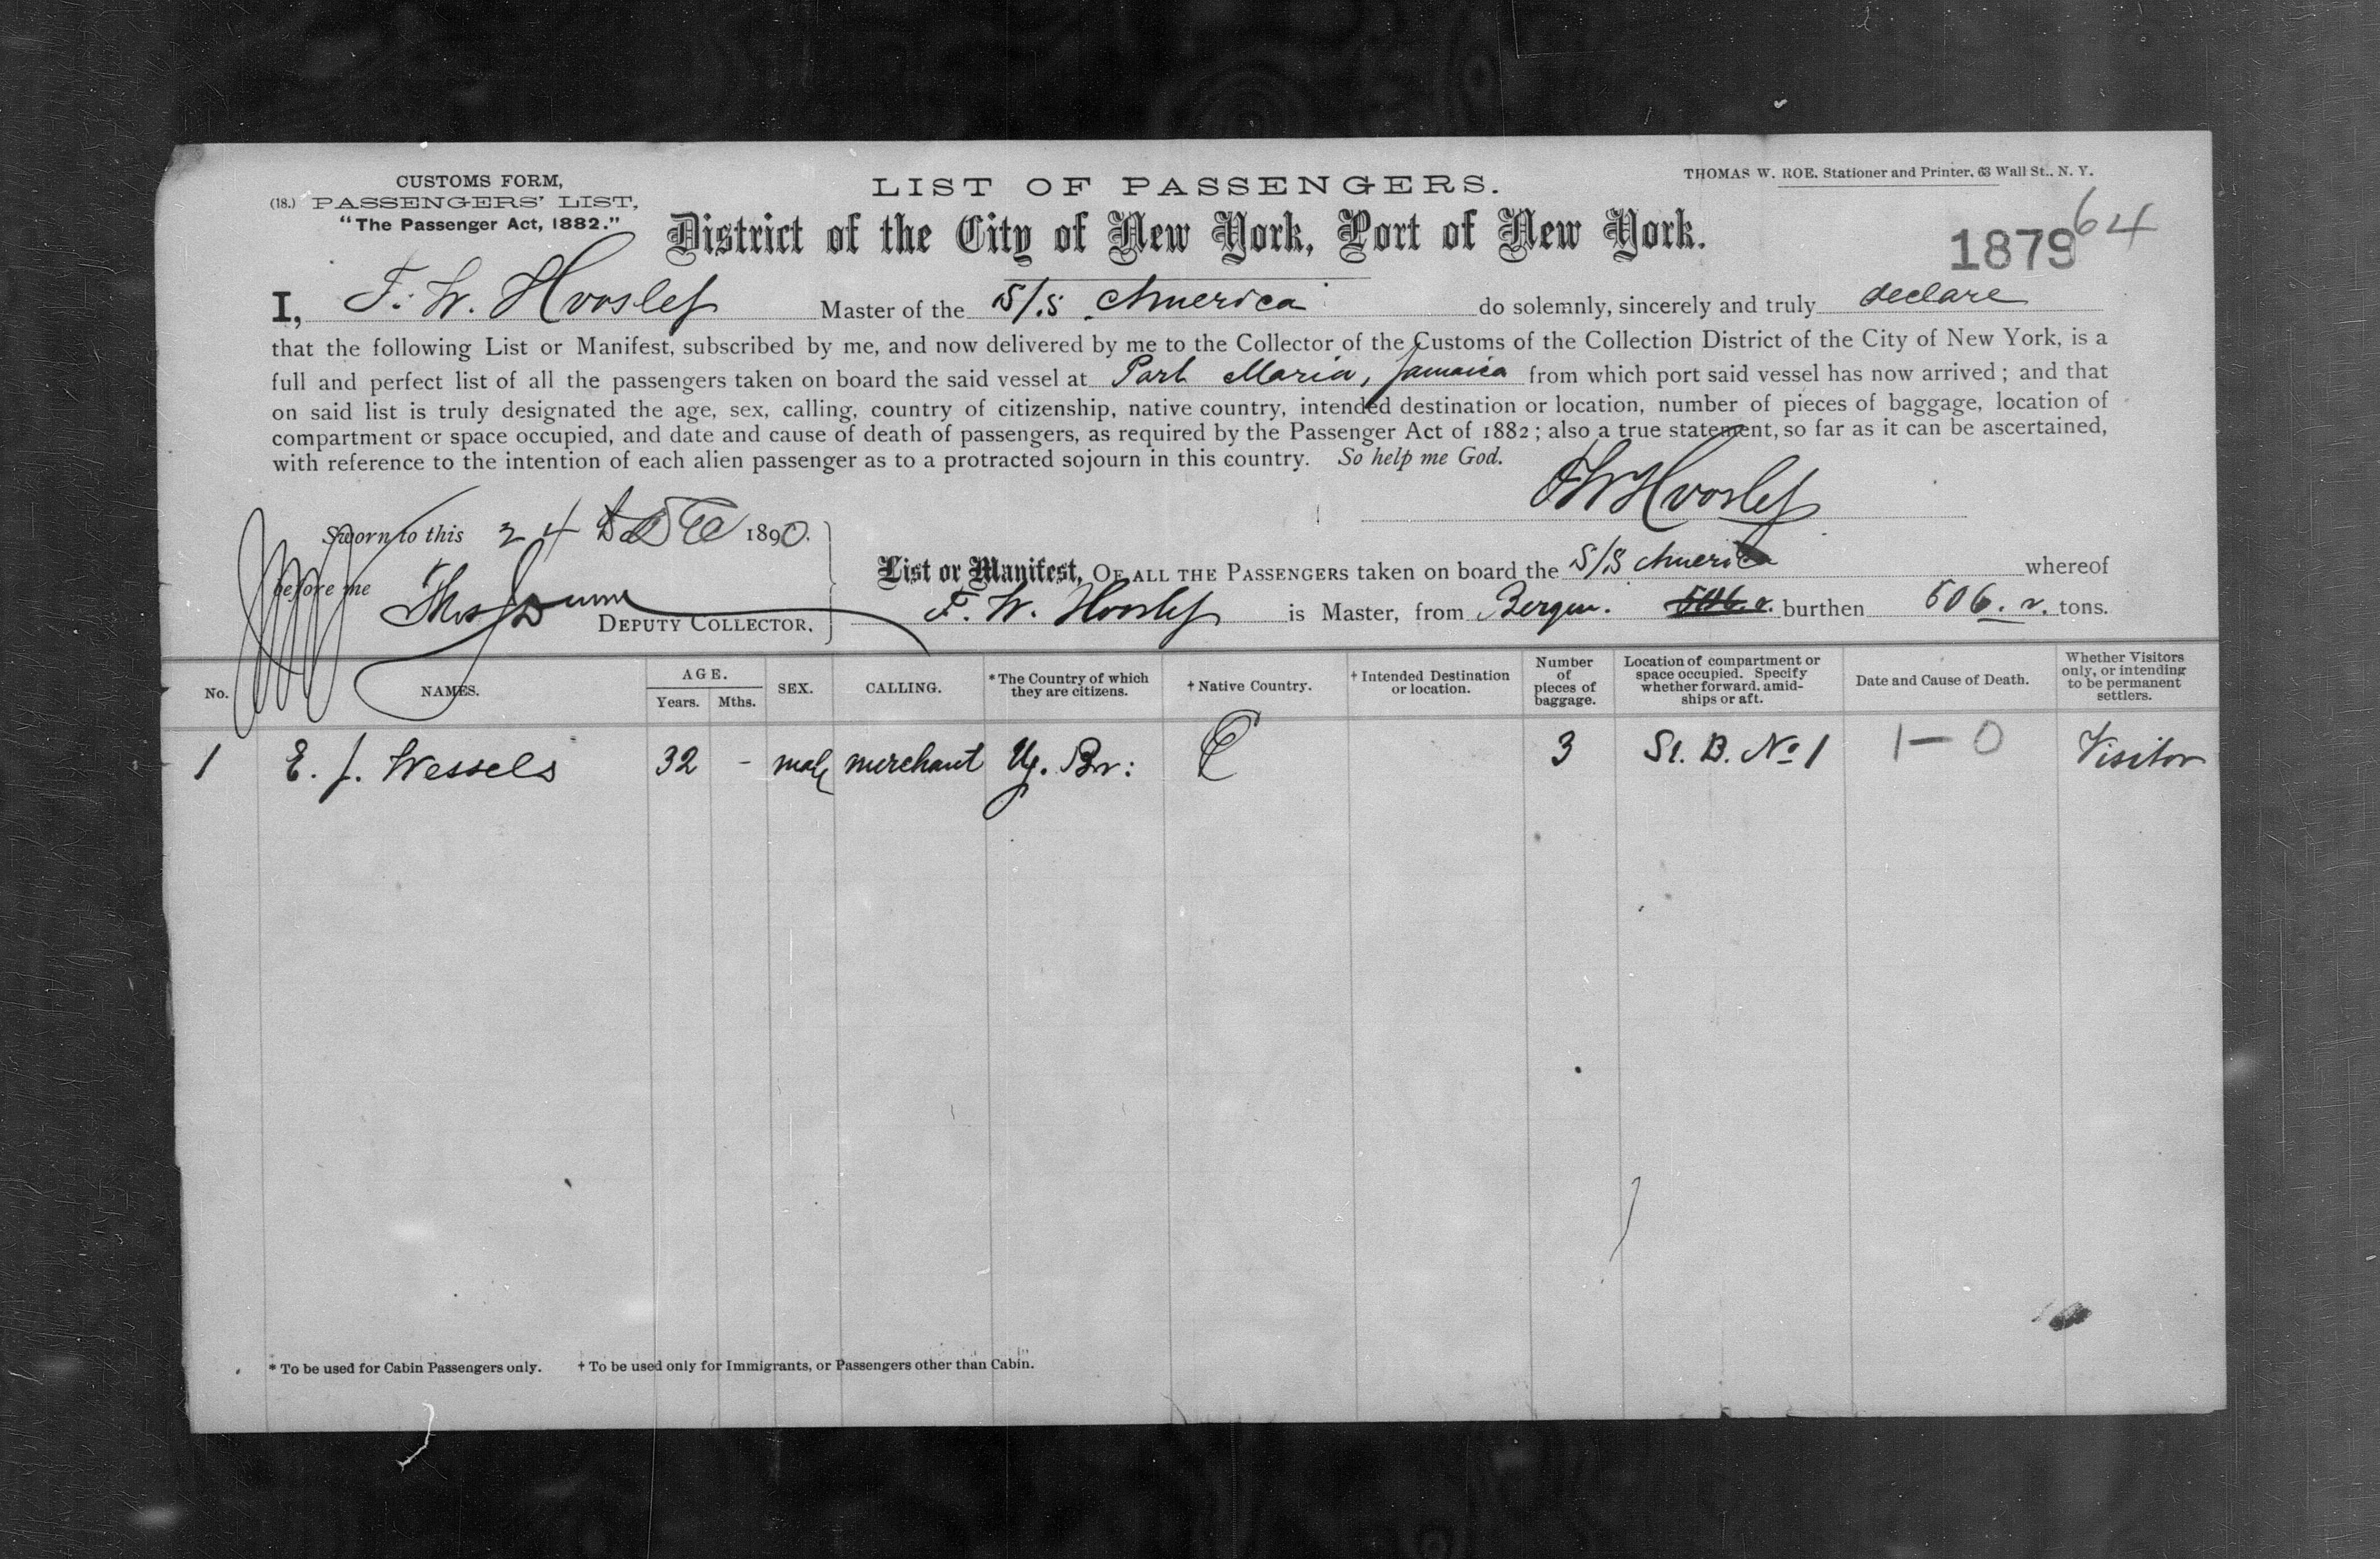 CUSTOMS FORM,
(18.) PASSENGERS' LIST,
"The Passenger Act, 1882."
LIST OF PASSENGERS.
THOMAS W. ROE, Stationer and Printer, 63 Wall St., N. Y.
District of the City of New York, Port of New York.
1879 64
I, F. W. Master of the S/S America do solemnly, sincerely and truly declare
that the following List or Manifest, subscribed by me, and now delivered by me to the Collector of the Customs of the Collection District of the City of New York, is a
full and perfect list of all the passengers taken on board the said vessel at Port Maria, Jamaica from which port said vessel has now arrived; and that
on said list is truly designated the age, sex, calling, country of citizenship, native country, intended destination or location, number of pieces of baggage, location of
compartment or space occupied, and date and cause of death of passengers, as required by the Passenger Act of 1882; also a true statement, so far as it can be ascertained,
with reference to the intention of each alien passenger as to a protracted sojourn in this country. So help me God.
Sworn to this 24 Dec 1890.
before me
DEPUTY COLLECTOR.
List or Manifest, OF ALL THE PASSENGERS taken on board the S/S America whereof
F. W. is Master, from Bergen. burthen 606. tons.
No. NAMES. AGE. Years. Mths. SEX. CALLING. *The Country of which they are citizens. †Native Country. †Intended Destination or location. Number of pieces of baggage. Location of compartment or space occupied. Specify whether forward, amidships or aft. Date and Cause of Death. Whether Visitors only, or intending to be permanent settlers.
1 E. J. Wessels 32 - male merchant 3 St. B. No 1 1 — 0 Visitor
* To be used for Cabin Passengers only. † To be used only for Immigrants, or Passengers other than Cabin.